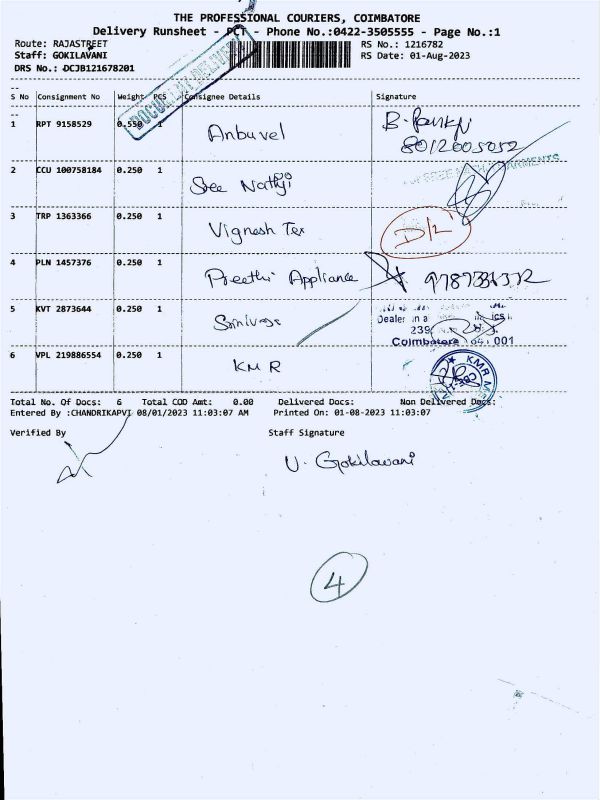 THE PROFESSIONAL COURIERS, COIMBATORE
Delivery Runsheet - PCT - Phone No.:0422-3505555 - Page No.:1
Route: RAJASTREET RS No.: 1216782
Staff: GOKILAVANI RS Date: 01-Aug-2023
DRS No.: DCJB121678201
DOCUMENT DELIVERY
S No Consignment No Weight PCS Consignee Details Signature
1 RPT 9158529 0.550 1 Anbuvel
8012005052
2 CCU 100758184 0.250 1 Sree Nathji
3 TRP 1363366 0.250 1 Vignesh Tex D/L
4 PLN 1457376 0.250 1 Preethi Appliance
5 KVT 2873644 0.250 1 Srinivasa
Dealer in a
239
Coimbatore 641 001
6 VPL 219886554 0.250 1 KMR
KMR
Total No. Of Docs: 6 Total COD Amt: 0.00 Delivered Docs: Non Delivered Docs:
Entered By :CHANDRIKAPVI 08/01/2023 11:03:07 AM Printed On: 01-08-2023 11:03:07
Verified By Staff Signature
V. Gokilavani
4